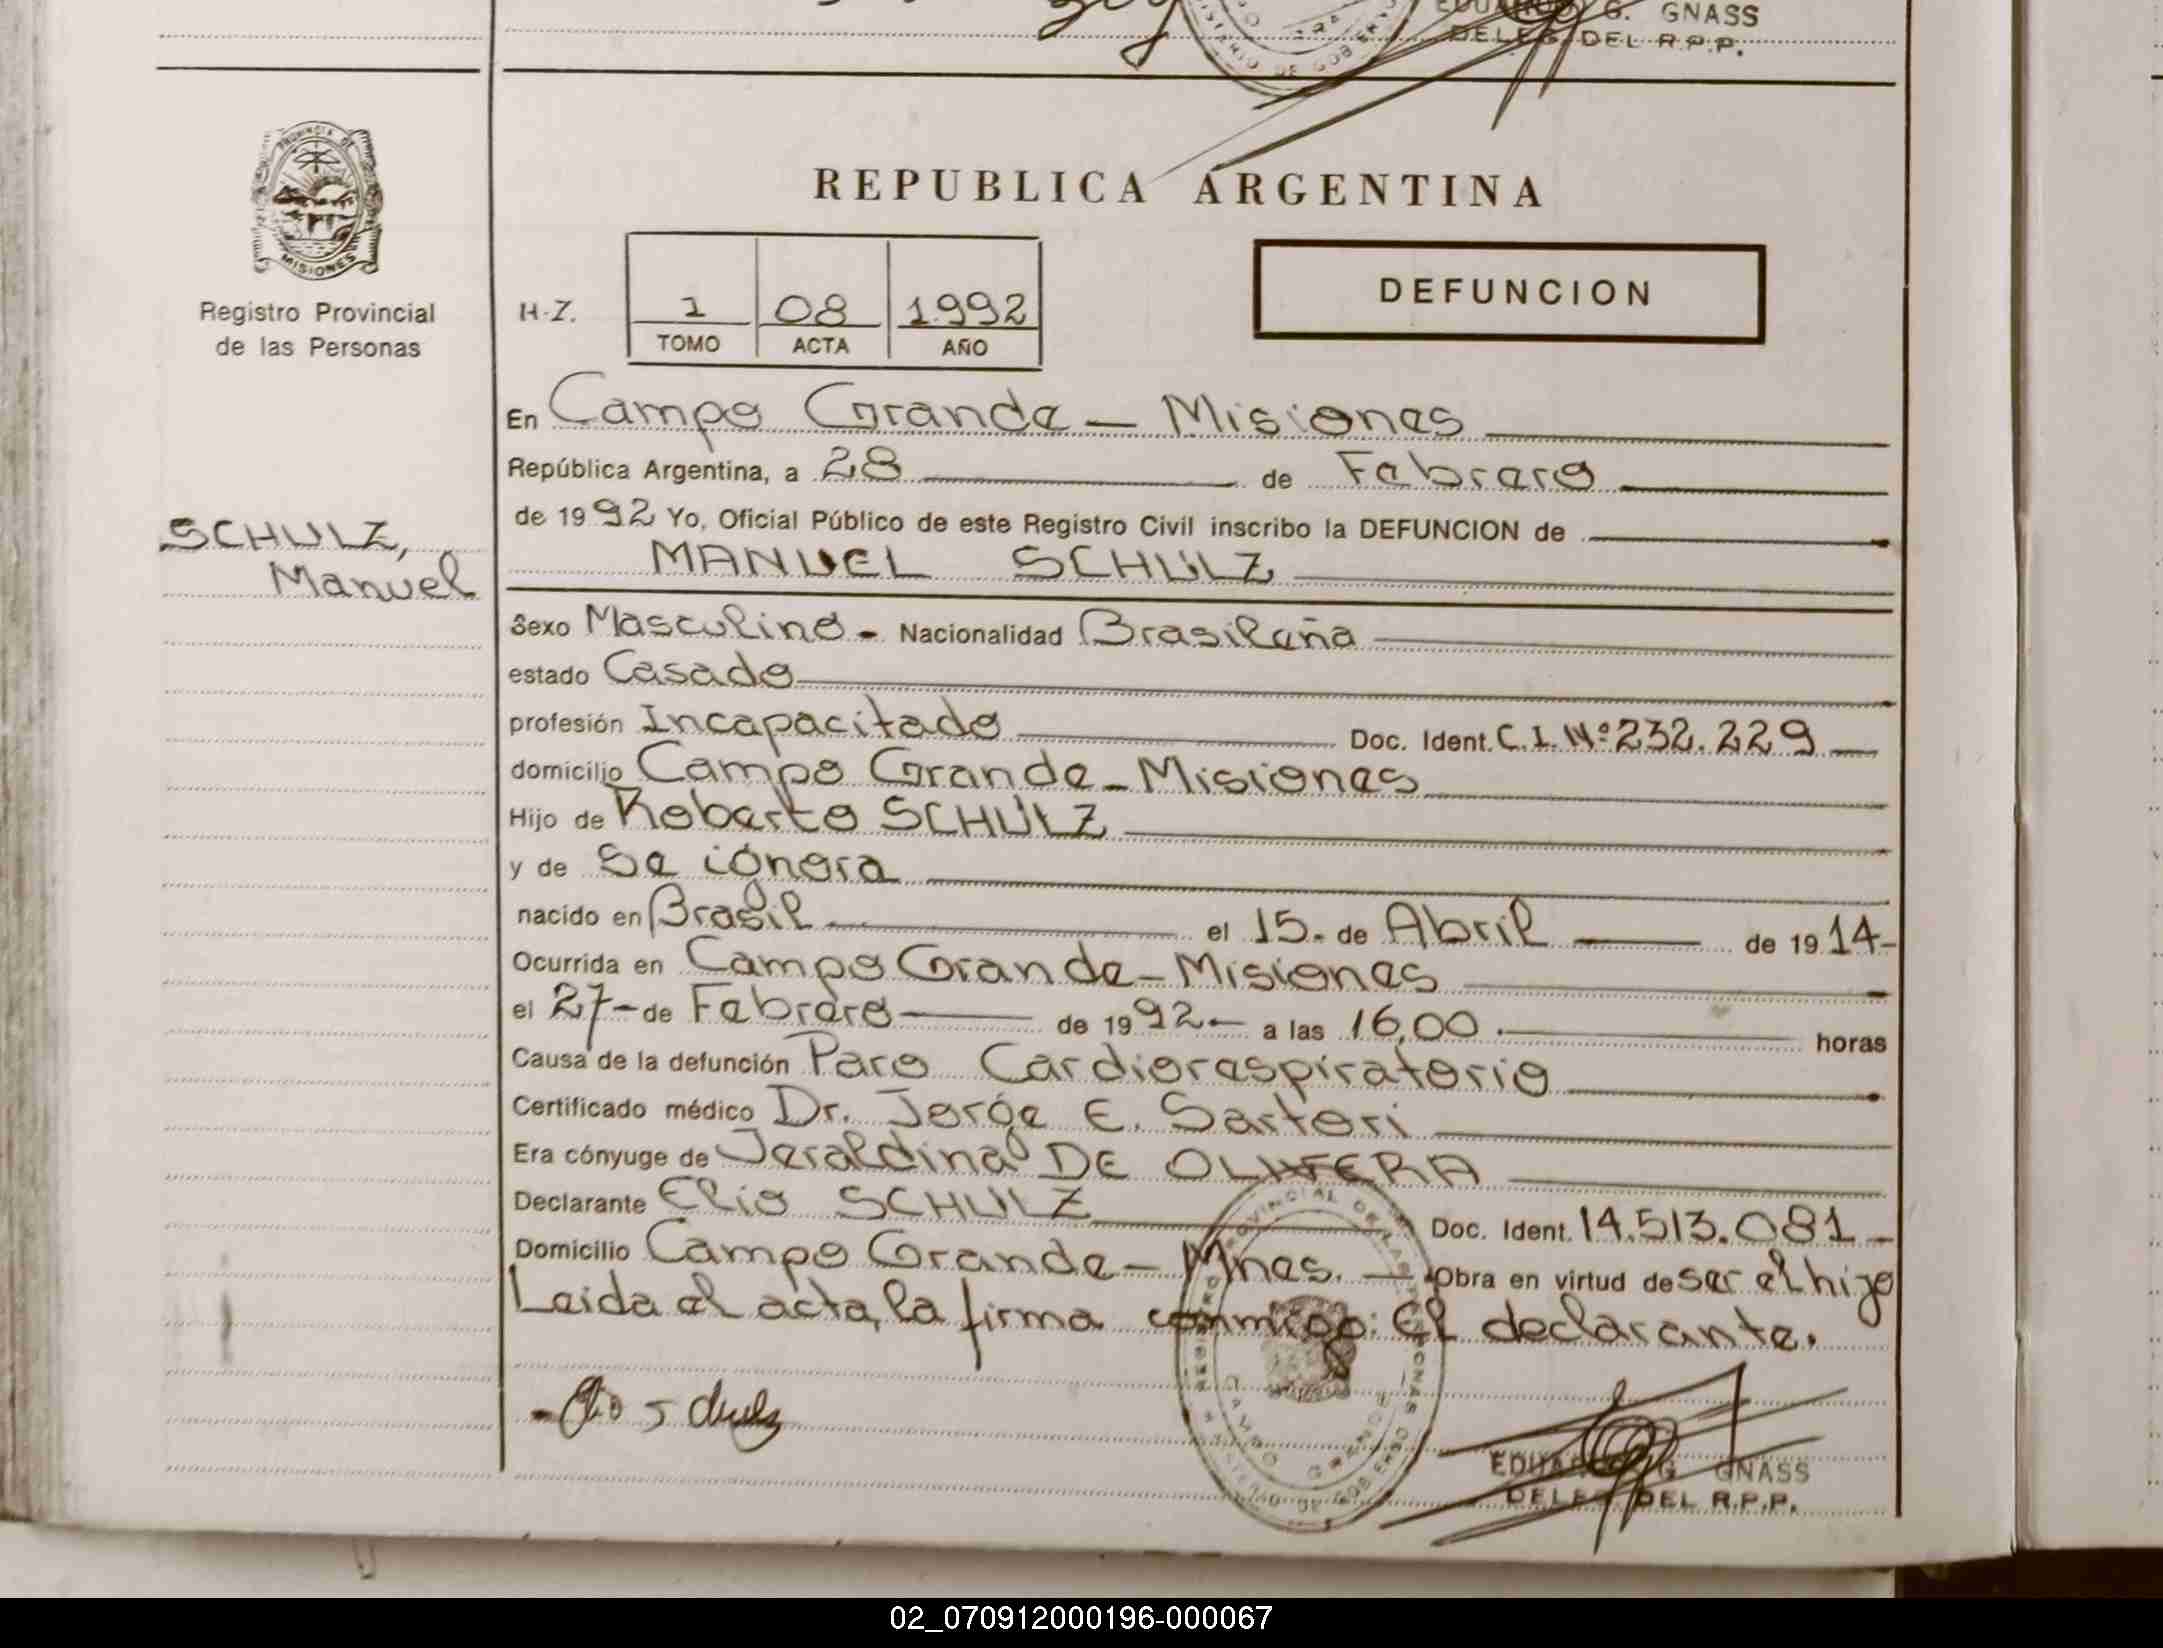 G. GNASS
DELEG. DEL R.P.P.
PROVINCIA DE
MISIONES
Registro Provincial
de las Personas
REPUBLICA ARGENTINA
H-Z.
1 08 1.992
TOMO ACTA AÑO
DEFUNCION
En Campo Grande - Misiones
República Argentina, a 28 de Febrero
de 1992 Yo, Oficial Público de este Registro Civil inscribo la DEFUNCION de
MANUEL SCHULZ
SCHULZ,
Manuel
Sexo Masculino - Nacionalidad Brasileña
estado Casado
profesión Incapacitado Doc. Ident. C.I. Nº 232.229
domicilio Campo Grande - Misiones
Hijo de Roberto SCHULZ
y de Se ignora
nacido en Brasil el 15. de Abril de 19 14-
Ocurrida en Campo Grande - Misiones
el 27 - de Febrero de 19 92 - a las 16,00 . horas
Causa de la defunción Paro Cardiorespiratorio
Certificado médico Dr. Jorge E. Sartori
Era cónyuge de Jeraldina DE OLIVERA
Declarante Elio SCHULZ Doc. Ident. 14.513.081 -
Domicilio Campo Grande - Mnes. - Obra en virtud de ser el hijo
Leida el acta, la firma conmigo: El declarante.
CAMPO GRANDE
EDUARDO G. GNASS
DELEG. DEL R.P.P.
02_070912000196-000067